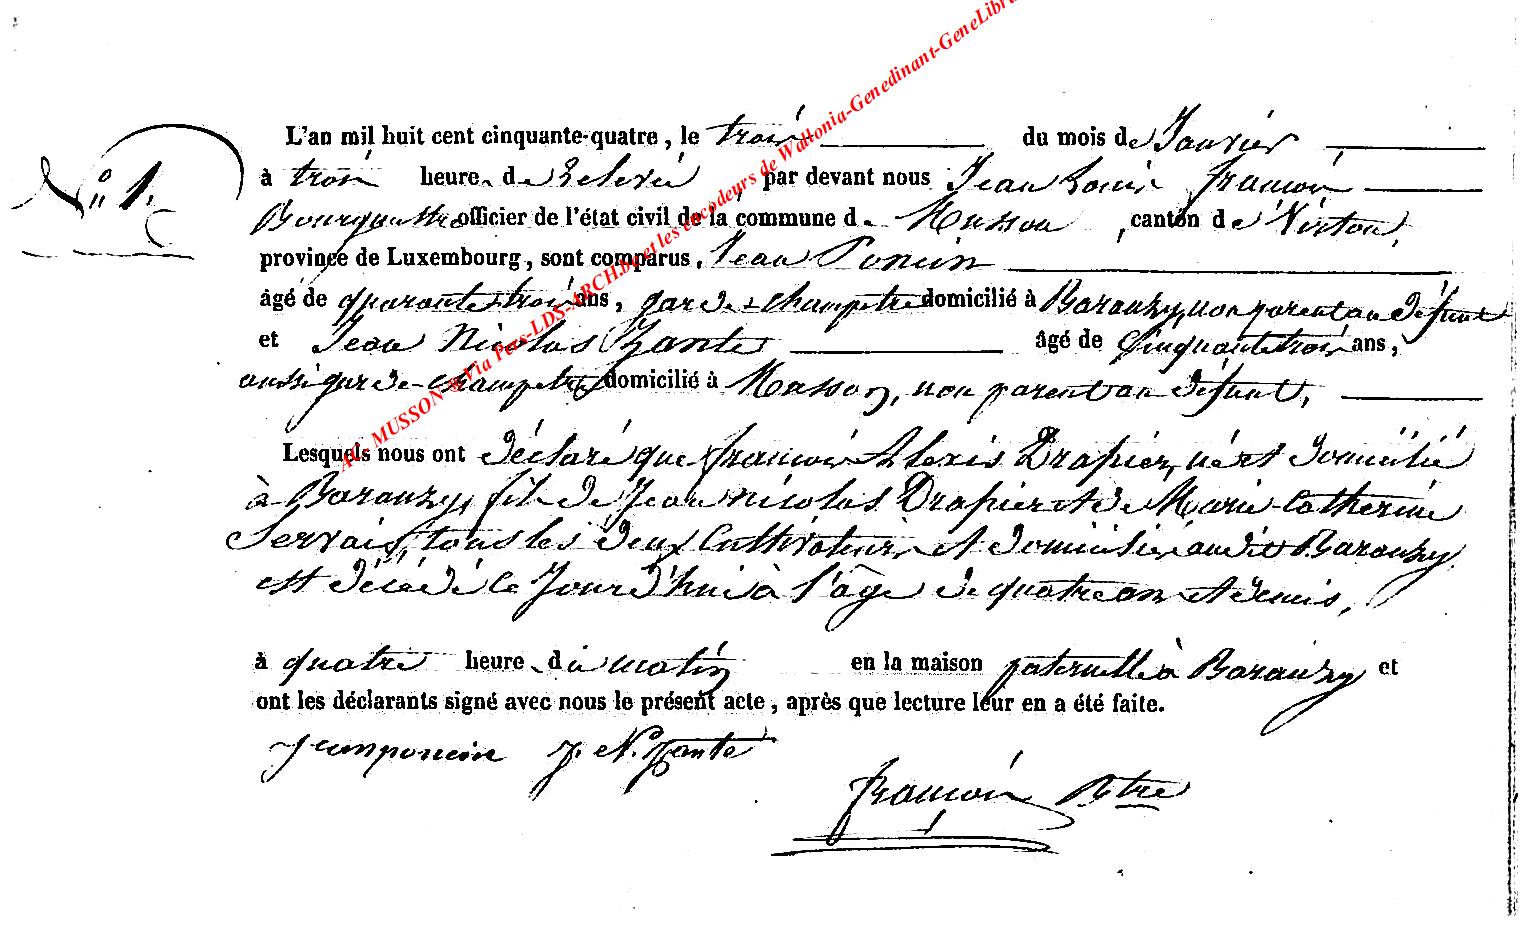 N° 1.
L'an mil huit cent cinquante-quatre, le trois du mois de Janvier
à trois heure de relevée par devant nous Jean Louis François
Bourguestre officier de l'état civil de la commune de Musson, canton de Virton,
province de Luxembourg, sont comparus, Jean Poncin
âgé de quarante trois ans, garde champetre domicilié à Baranzy, non parent au défunt
et Jean Nicolas Zante âgé de Cinquante trois ans,
aussi garde champetre domicilié à Musson, non parent au défunt,
Lesquels nous ont déclaré que françois Alexis Drapier, né et domicilié
à Baranzy, fils de Jean nicolas Drapier et de Marie Catherine
Servais, tous les deux Cultivateurs et domiciliés audit Baranzy
est décédé ce Jourd'hui à l'âge de quatre ans et demis,
à quatre heure du matin en la maison paternelle à Baranzy et
ont les déclarants signé avec nous le présent acte, après que lecture leur en a été faite.
Jean poncin J. N. Zante
françois Btre
AC. MUSSON © Via Pers-LDS-ARCH.be et les encodeurs de Wallonia-Genedinant-GeneLibr